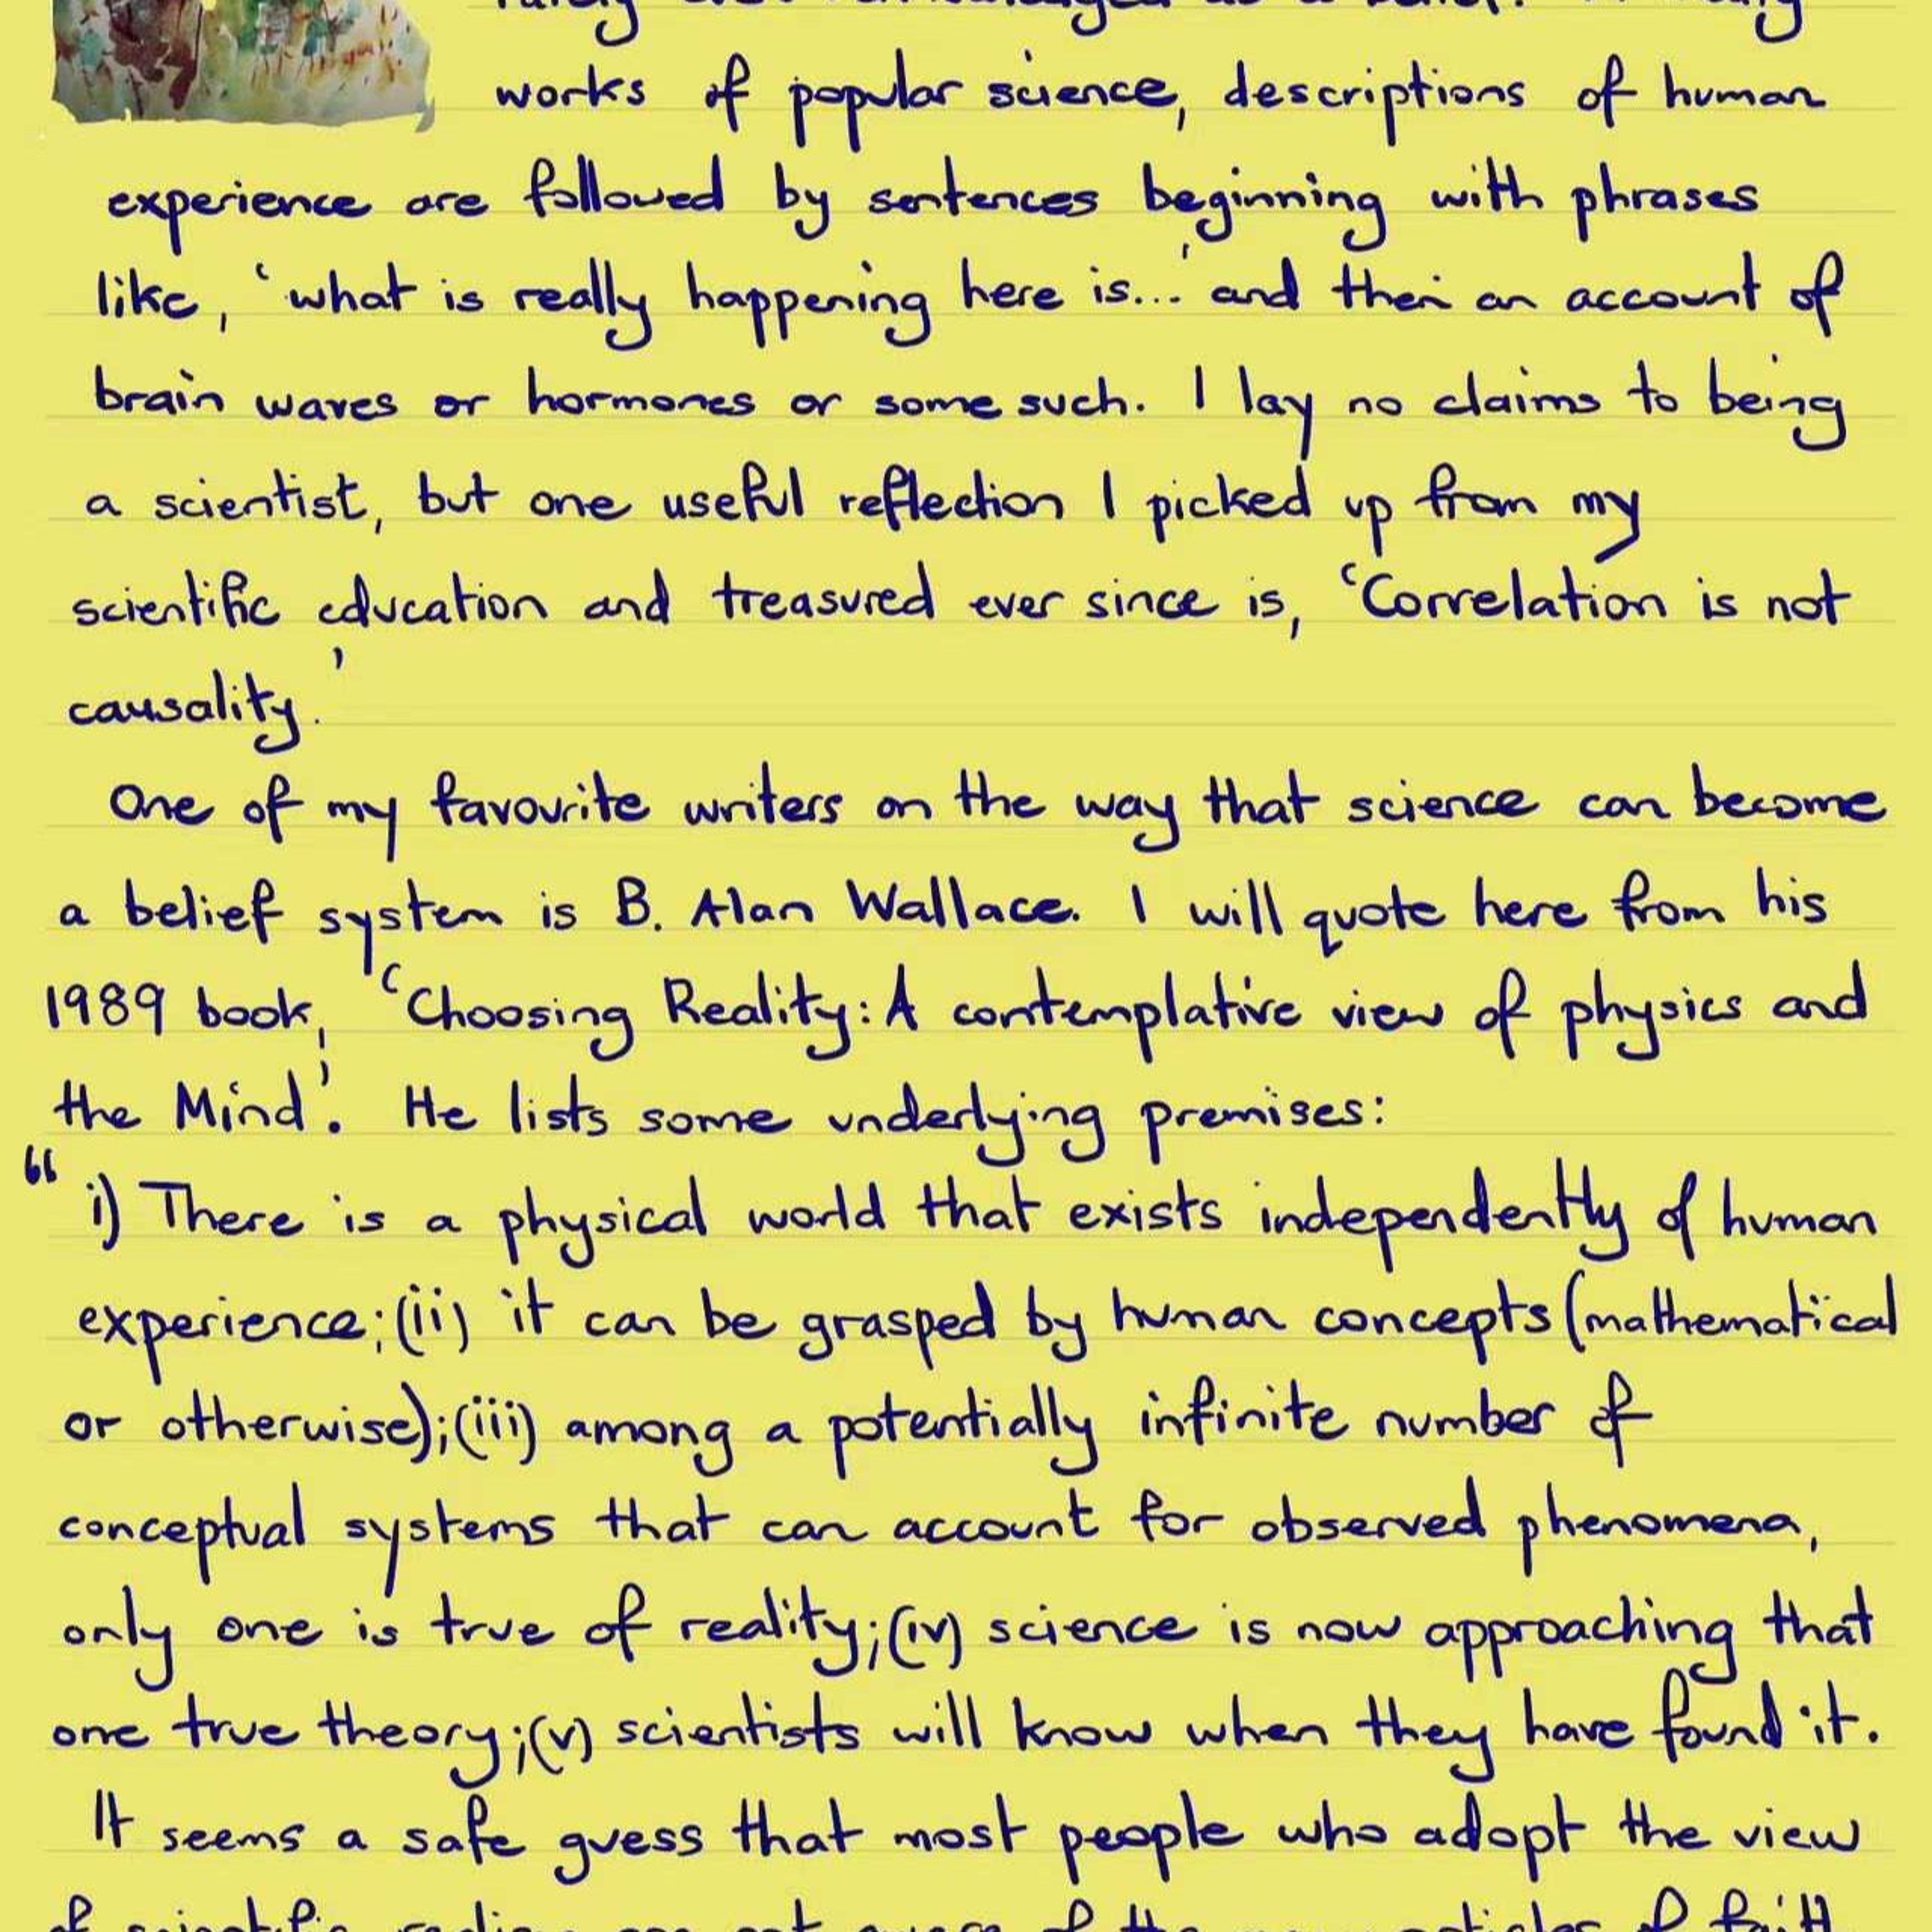 works of popular science, descriptions of human
experience are followed by sentences beginning with phrases
like, 'what is really happening here is...' and then an account of
brain waves or hormones or some such. I lay no claims to being
a scientist, but one useful reflection I picked up from my
scientific education and treasured ever since is, 'Correlation is not
causality.'
One of my favourite writers on the way that science can become
a belief system is B. Alan Wallace. I will quote here from his
1989 book, 'Choosing Reality: A contemplative view of physics and
the Mind'. He lists some underlying premises:
“i) There is a physical world that exists independently of human
experience; (ii) it can be grasped by human concepts (mathematical
or otherwise); (iii) among a potentially infinite number of
conceptual systems that can account for observed phenomena,
only one is true of reality; (iv) science is now approaching that
one true theory; (v) scientists will know when they have found it.
It seems a safe guess that most people who adopt the view